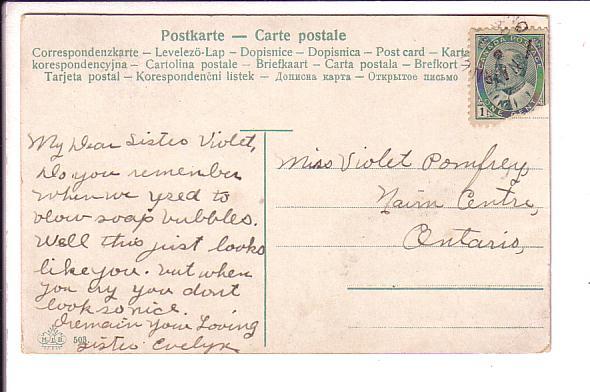 Postkarte — Carte postale
Correspondenzkarte — Levelező-Lap — Dopisnice — Dopisnica — Post card — Karta
korespondencyjna — Cartolina postale — Briefkaart — Carta postala — Brefkort —
Tarjeta postal — Korespondenční listek — Дописна карта — Открытое письмо
CANADA POSTAGE
1
ONE CENT
My Dear Sister Violet,
Do you remember
when we used to
blow soap bubbles.
Well this just looks
like you. but when
you cry you dont
look so nice.
I remain your Loving
sister Evelyn
Miss Violet Pomfrey,
Nairn Centre,
Ontario,
M.J.B.